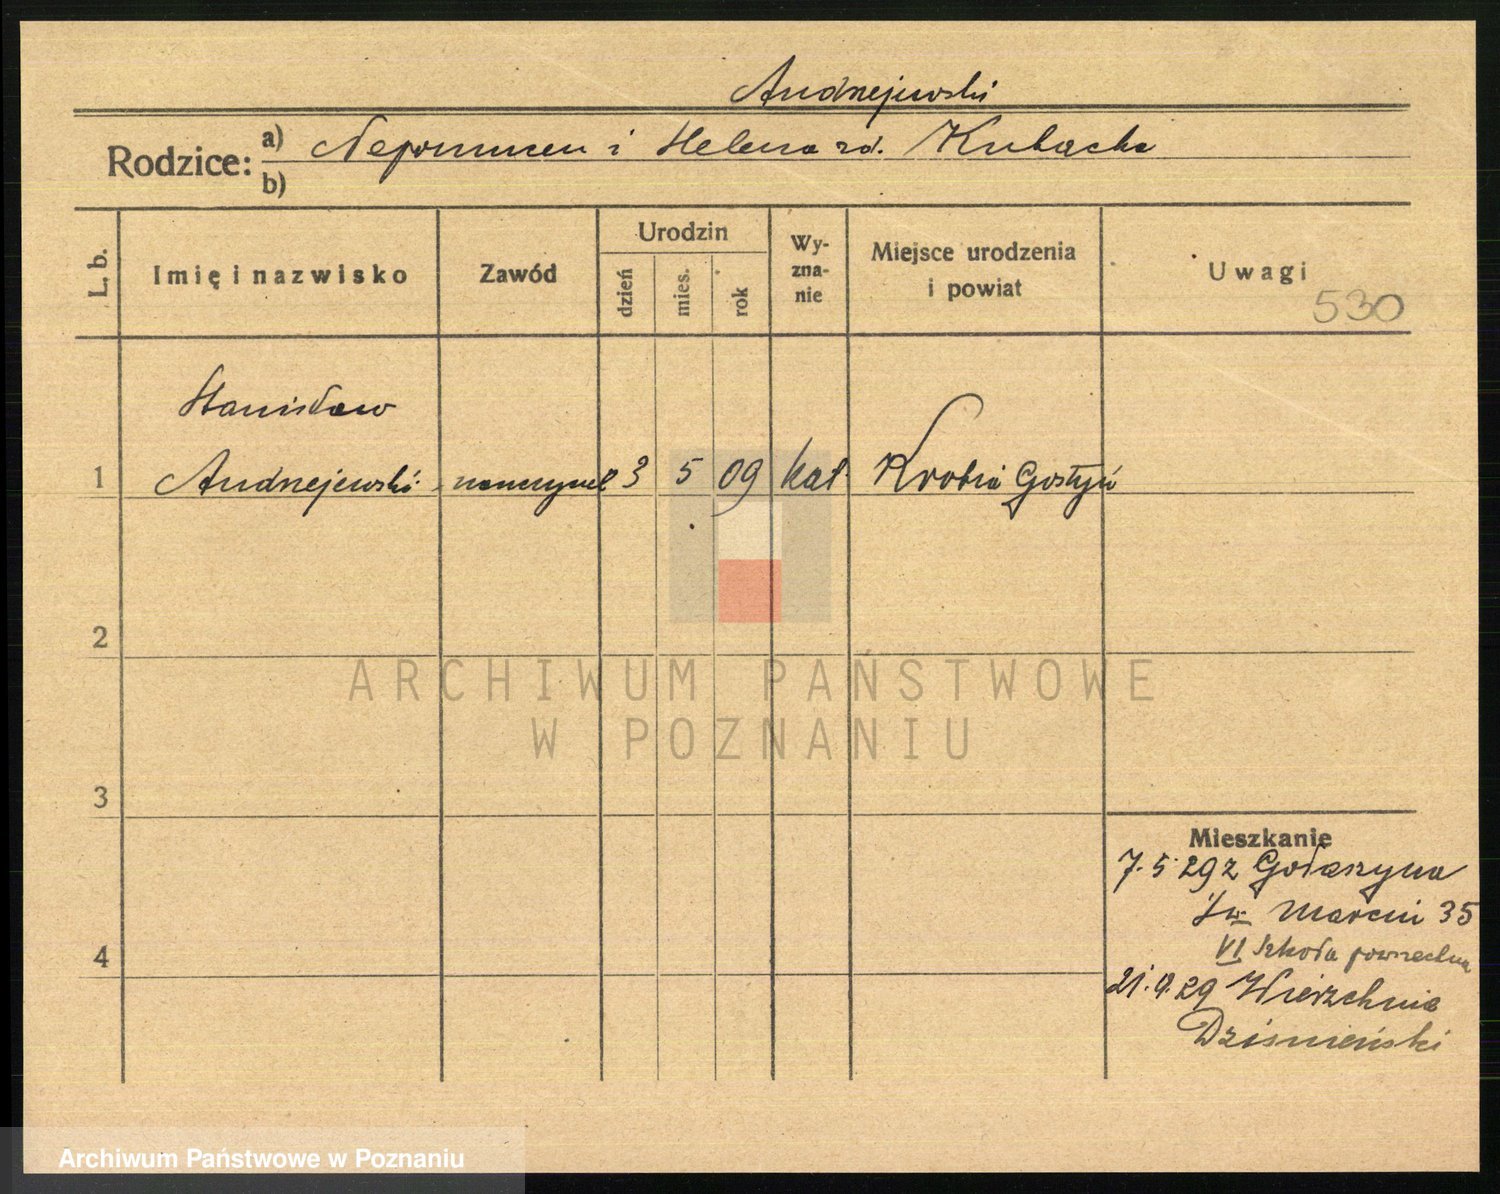 Andrzejewski
Rodzice: a) Nepomucen i Helena zd. Kubacka
b)
L. b. Imię i nazwisko Zawód Urodzin Wy-zna-nie Miejsce urodzenia i powiat Uwagi
dzień mies. rok
530
Stanisław
1 Andrzejewski nauczyciel 3 5 09 kat. Krobia Gostyń
2
3
4
Mieszkanie
7.5.29 z Gołaszyna
Św. Marcin 35
VI Szkoła powszechna
21.9.29 Wierzchnie
Dziśnieński
ARCHIWUM PAŃSTWOWE
W POZNANIU
Archiwum Państwowe w Poznaniu